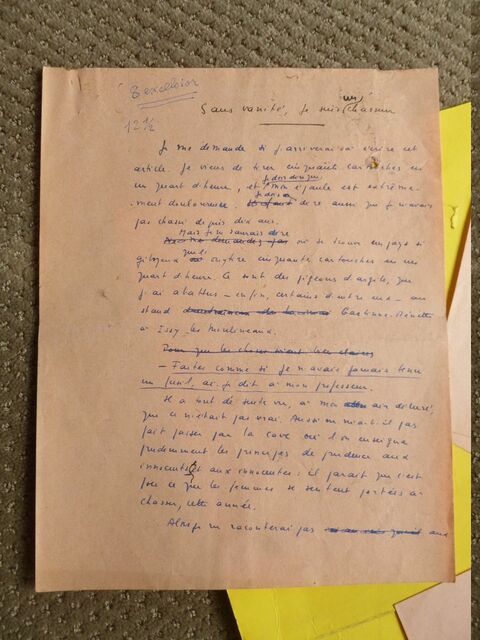 Excelsior
Sans vanité, je suis un chasseur
12 1/2
Je me demande si j'arriverai à écrire cet
article. Je viens de tirer cinquante cartouches en
un quart d'heure, et mon épaule est extrême-
ment douloureuse. Je dois dire aussi que je n'avais
pas chassé depuis dix ans.
Mais je ne saurais dire
où se trouve un pays si
giboyeux qu'on y tire cinquante cartouches en un
quart d'heure. Ce sont des pigeons d'argile, que
j'ai abattus – enfin, certains d'entre eux – au
stand Gastinne-Renette
à Issy les Moulineaux.
Pour que les choses soient bien claires
– Faites comme si je n'avais jamais tenu
un fusil, ai-je dit à mon professeur.
Il a tout de suite vu, à mon air déluré,
que ce n'était pas vrai. Aussi ne m'a-t-il pas
fait passer par la cave où l'on enseigne
prudemment les principes de prudence aux
innocents et aux innocentes : il paraît que c'est
fou ce que les femmes se sentent portées à
chasser, cette année.
Alors je ne raconterai pas aux